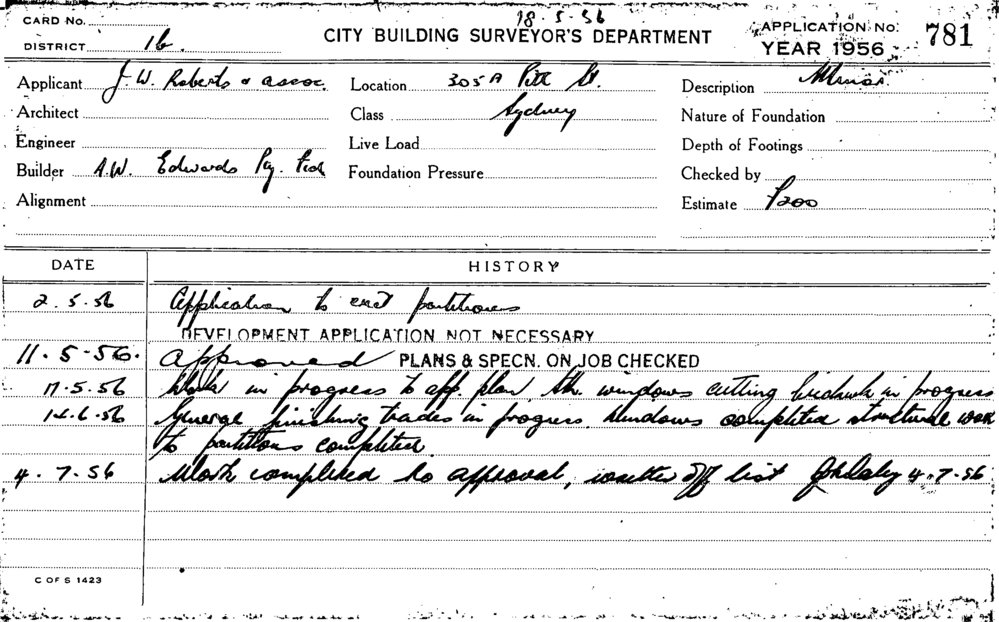 CARD No.
18.5.56
DISTRICT 16.
CITY BUILDING SURVEYOR'S DEPARTMENT
APPLICATION No. 781
YEAR 1956
Applicant J. W. Roberts & assoc.
Location 305A Pitt St.
Description Minor
Architect
Class Sydney
Nature of Foundation
Engineer
Live Load
Depth of Footings
Builder A.W. Edwards Pty.
Foundation Pressure
Checked by
Alignment
Estimate £200
DATE HISTORY
2.5.56 Application to erect partitions
DEVELOPMENT APPLICATION NOT NECESSARY
11.5.56. Approved PLANS & SPECN. ON JOB CHECKED
17.5.56 Work in progress to app. plan, windows cutting brickwork in progress
14.6.56 General finishing trades in progress. Windows completed structural work
to partitions completed.
4.7.56 Work completed to approval, written off list 4.7.56
C OF S 1423